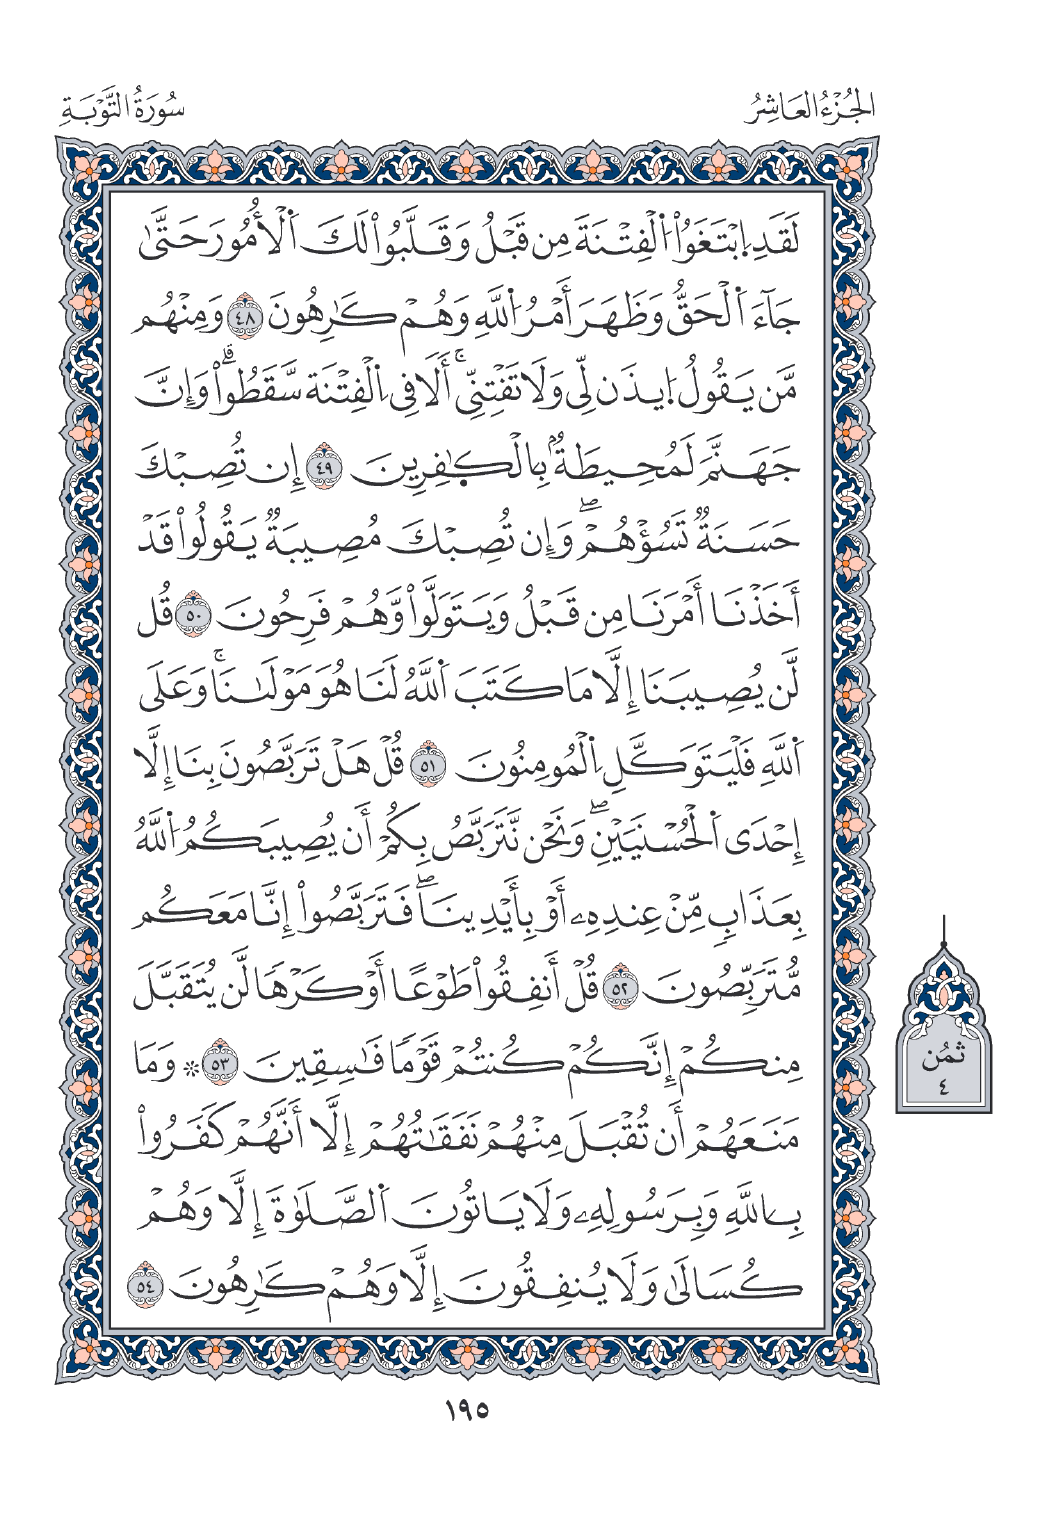 الجُزْءُ العَاشِرُ
سُورَةُ التَّوْبَةِ
لَقَدِ اِ۪بْتَغَوُاْ اُ۬لْفِتْنَةَ مِن قَبْلُ وَقَلَّبُواْ لَكَ اَ۬لْأُمُورَ حَتَّىٰ
جَآءَ اَ۬لْحَقُّ وَظَهَرَ أَمْرُ اُ۬للَّهِ وَهُمْ كَٰرِهُونَ ٤٨ وَمِنْهُم
مَّن يَقُولُ اُ۪يذَن لِّى وَلَا تَفْتِنِّىۚ أَلَا فِى اِ۬لْفِتْنَة سَّقَطُواْۗ وَإِنَّ
جَهَنَّمَ لَمُحِيطَةُۢ بِالْكٰ۪فِرِينَ ٤٩ إِن تُصِبْكَ
حَسَنَةٌ تَسُؤْهُمْۖ وَإِن تُصِبْكَ مُصِيبَةٌ يَقُولُواْ قَدْ
أَخَذْنَا أَمْرَنَا مِن قَبْلُ وَيَتَوَلَّواْ وَّهُمْ فَرِحُونَ ٥٠ قُل
لَّن يُصِيبَنَا إِلَّا مَا كَتَبَ اَ۬للَّهُ لَنَا هُوَ مَوْلَىٰنَاۚ وَعَلَى
اَ۬للَّهِ فَلْيَتَوَكَّلِ اِ۬لْمُومِنُونَ ٥١ قُلْ هَلْ تَرَبَّصُونَ بِنَا إِلَّا
إِحْدَى اَ۬لْحُسْنَيَيْنِۖ وَنَحْن نَّتَرَبَّصُ بِكُمْ أَن يُصِيبَكُمُ اُ۬للَّهُ
بِعَذَابٍ مِّنْ عِندِهِۦ أَوْ بِأَيْدِينَاۖ فَتَرَبَّصُواْ إِنَّا مَعَكُم
مُّتَرَبِّصُونَ ٥٢ قُلْ أَنفِقُواْ طَوْعًا أَوْ كَرْهًا لَّن يُتَقَبَّلَ
مِنكُمْ إِنَّكُمْ كُنتُمْ قَوْمًا فَٰسِقِينَ ٥٣ ۞ وَمَا
مَنَعَهُمْ أَن تُقْبَلَ مِنْهُمْ نَفَقَٰتُهُمْ إِلَّا أَنَّهُمْ كَفَرُواْ
بِاللَّهِ وَبِرَسُولِهِۦ وَلَا يَاتُونَ اَ۬لصَّلَوٰةَ إِلَّا وَهُمْ
كُسَالَىٰ وَلَا يُنفِقُونَ إِلَّا وَهُمْ كَٰرِهُونَ ٥٤
ثُمُن
٤
١٩٥